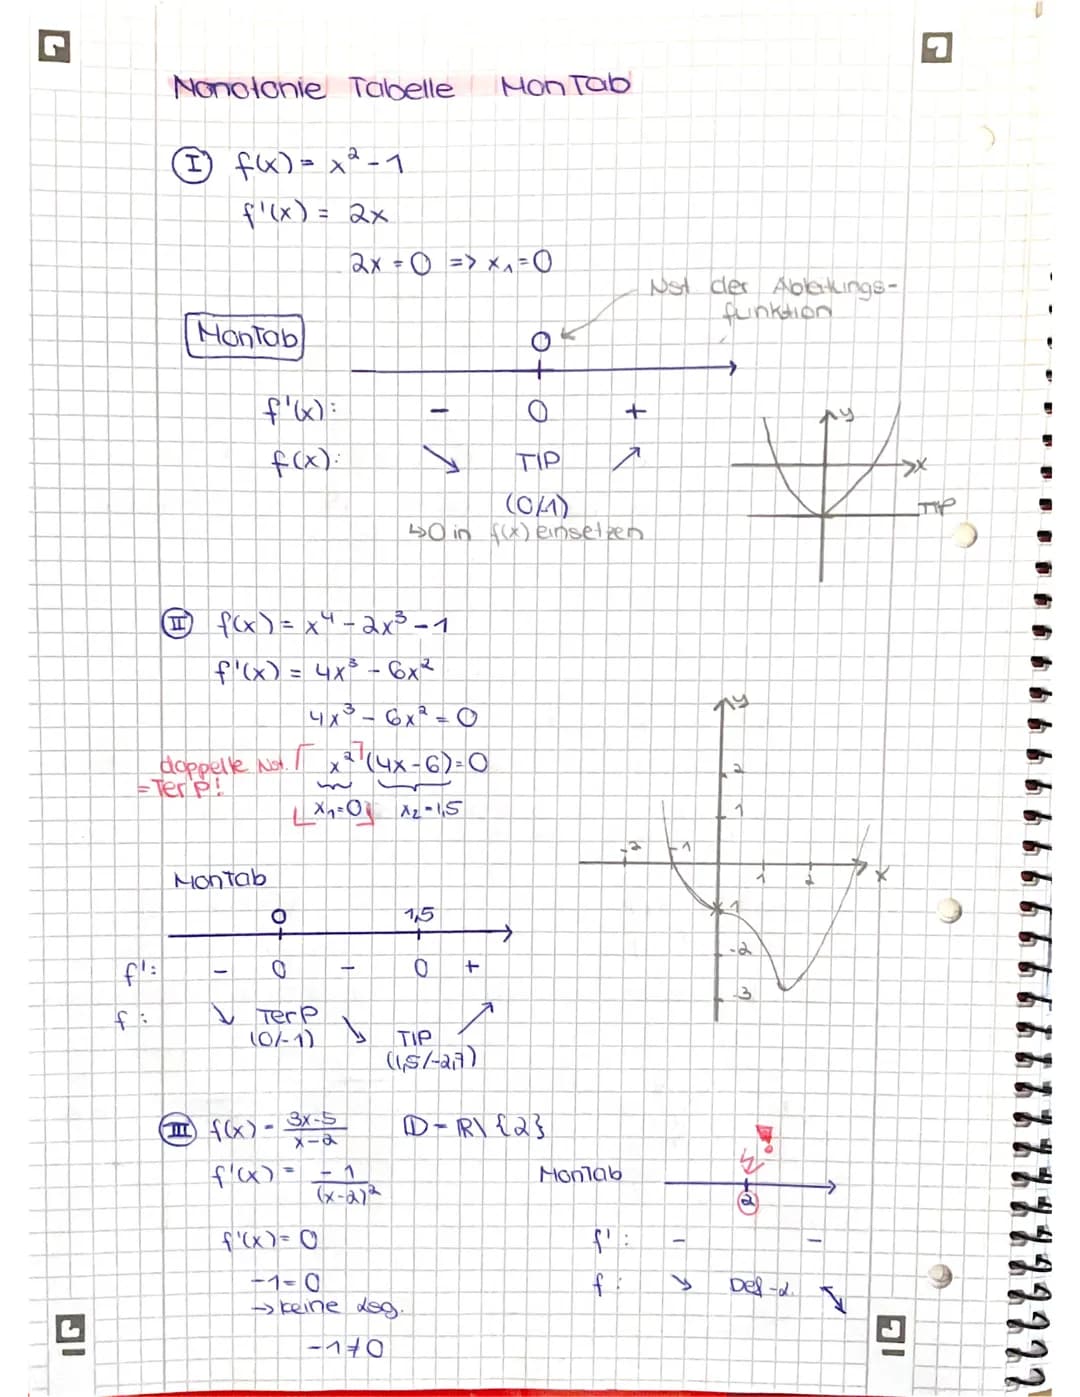 Monotonie Tabelle MonTab
I f(x) = x² - 1
f'(x) = 2x
2x = 0 => x₁ = 0
Nst der Ableitungs-
funktion
MonTab
0
f'(x): - 0 +
f(x): ↘ TIP ↗
(0/-1)
↳ 0 in f(x) einsetzen
y
x
TIP
II f(x) = x⁴ - 2x³ - 1
f'(x) = 4x³ - 6x²
4x³ - 6x² = 0
doppelte Nst. x² (4x-6) = 0
= TerP!
x₁=0 x₂=1,5
MonTab
0 1,5
f': - 0 - 0 +
f: ↘ TerP ↘ TIP ↗
(0/-1) (1,5/-2,7)
y
2
1
-2 -1 1 2 x
-1
-2
-3
III f(x) = 3x-5 / x-2 D = R\{2}
f'(x) = -1 / (x-2)²
MonTab
!
2
f'(x) = 0
-1 = 0
→ keine Lsg.
-1 ≠ 0
f': - -
f: ↘ Def-L. ↘